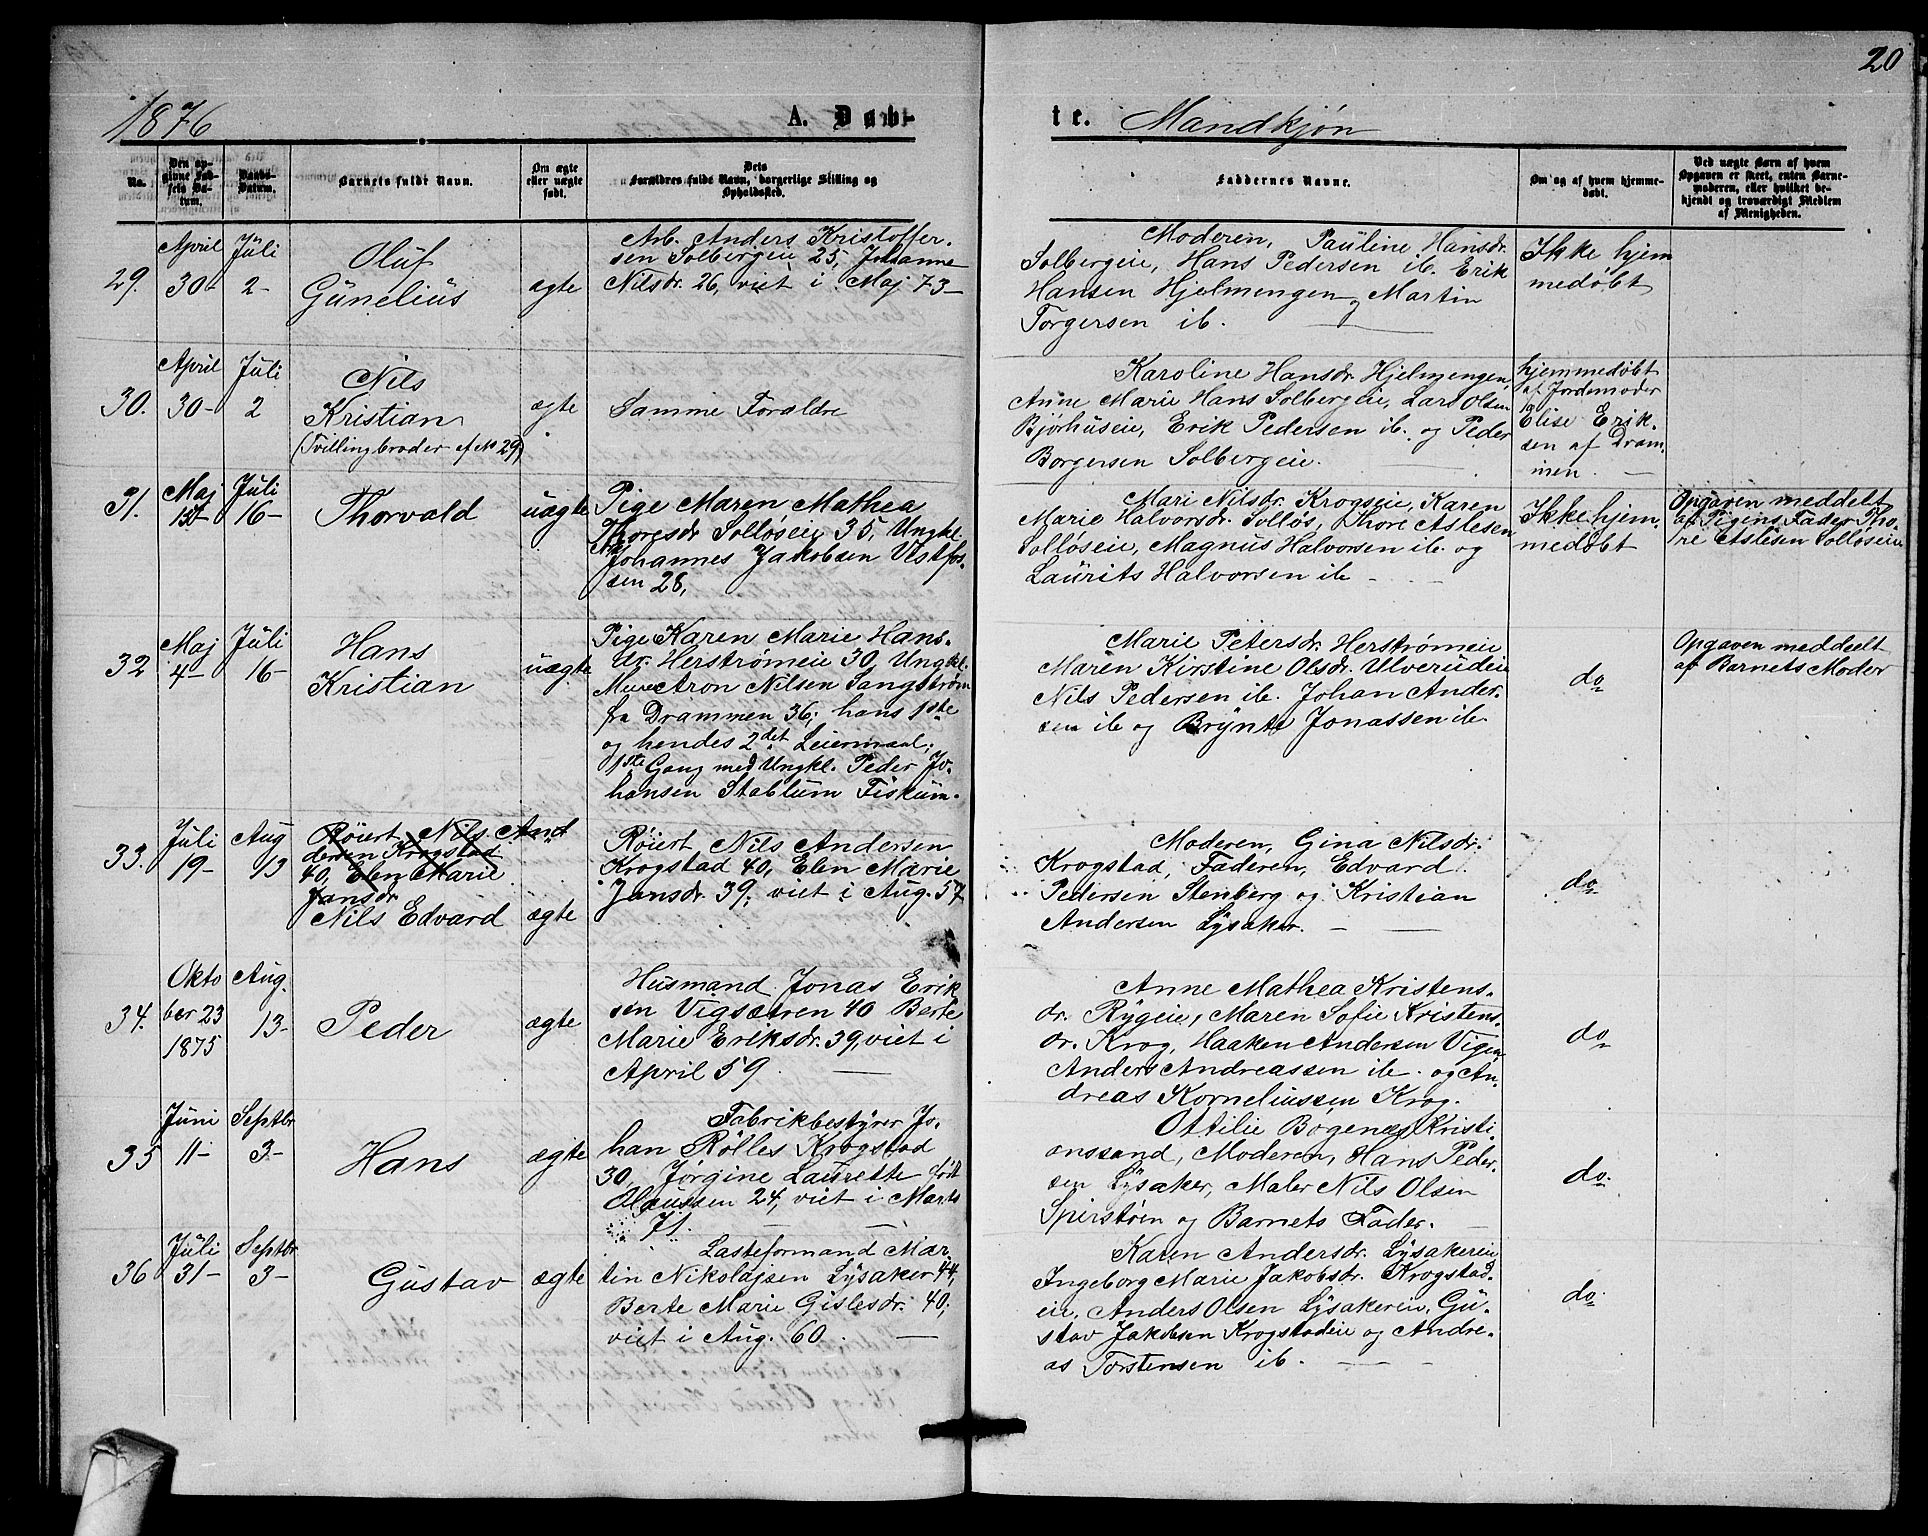 20
1876
A. Døb-
te. Mandkjøn
No.
Den op-
givne Fød-
sels Da-
tum.
Daabs-
Datum.
Barnets fulde Navn.
Om ægte
eller uægte
født.
Dets
Forældres fulde Navn, borgerlige Stilling og
Opholdssted.
Faddernes Navne.
Om og af hvem hjemme-
døbt.
Ved uægte Børn af hvem
Opgaven er skeet, enten Barne-
moderen, eller hvilket be-
kjendt og troværdigt Medlem
af Menigheden.
29.
April
30-
Juli
2-
Oluf
Günelius
ægte
Arb. Anders Kristoffer-
sen Solbergeie 25, Johanne
Nilsdr. 26, viet i Maj 73-
Moderen, Pauline Hansdr.
Solbergeie, Hans Pedersen ib. Erik
Hansen Hjelmengen og Martin
Torgersen ib.
Ikke hjem
medøbt
30.
April
30-
Juli
2
Nils
Kristian
(Tvillingbroder af No 29)
ægte
Samme Forældre
Karoline Hansdr. Hjelmengen,
Anne Marie Hans Solbergeie, Lars Olsen
Bjørhuseie, Erik Pedersen ib. og Peder
Borgersen Solbergeie.
hjemmedøbt
af Jordemoder
Elise Erik-
sen af Dram-
men.
31.
Maj
15-
Juli
16-
Thorvald
uægte
Pige Maren Mathea
Thoresdr Solløseie 35, Ungkl.
Johannes Jakobsen Vestfos-
sen 28,
Mari Nilsdr. Krogseie, Karen
Marie Halvorsdr. Solløs, Thore Aslesen
Solløseie, Magnus Halvorsen ib. og
Laurits Halvorsen ib
Ikke hjem-
medøbt
Opgaven meddelt
af Pigens Fader Tho-
re Aslesen Solløseie
32
Maj
4-
Juli
16-
Hans
Kristian
uægte
Pige Karen Marie Hans-
dr. Herstrømeie 30, Ungkl.
Murer Aron Nilsen Sangstrøm
fra Drammen 36; hans 1ste
og hendes 2det Leiermaal;
1ste Gang med Ungkl. Peder Jo-
hansen Stablum Fiskum.
Marie Petersdr. Herstrømeie
Maren Kirstine Olsdr. Ulverudeie
Nils Pedersen ib. Johan Ander-
sen ib og Brynte Jonassen ib
do
Opgaven meddelt
af Barnets Moder
33.
Juli
19-
Aug
13
Røiert Nils And
dersen Krogstad
40, Elen Marie
Jansdr
Nils Edvard
ægte
Røiert Nils Andersen
Krogstad 40, Elen Marie
Jansdr. 39; viet i Aug. 57
Moderen, Gina Nilsdr.
Krogstad, Faderen, Edvard
Pedersen Stenberg og Kristian
Andersen Lysaker.
do
34.
Okto
ber 23
1875
Aug.
13-
Peder
ægte
Husmand Jonas Erik
sen Vigsæteren 40 Berte
Marie Eriksdr. 39, viet i
April 59
Anne Mathea Kristens-
dr. Rygeie, Maren Sofie Kristens-
dr. Krog, Haaken Andersen Vigen
Anders Andreassen ib. og An-
dreas Korneliussen Krog.
do
35
Juni
11-
Septbr
3-
Hans
ægte
Fabrikbestyrer Jo-
han Rølles Krogstad
30, Jørgine Laurette født
Olaussen 24, viet i Marts
71.
Ottilie Bogenæs Kristi-
anssand, Moderen, Hans Peder-
sen Lysaker, Maler Nils Olsen
Spirstøen og Barnets Fader.
do.
36
Juli
31-
Septbr
3-
Gustav
ægte
Lasteformand Mar-
tin Nikolajsen Lysaker 44,
Berte Marie Gislesdr. 40;
viet i Aug. 60.
Karen Andersdr. Lysakereie
Ingeborg Marie Jakobsdr. Krogstad-
eie, Anders Olsen Lysakereie, Gu-
stav Jakobsen Krogstadeie og Andre-
as Torstensen ib.
do.